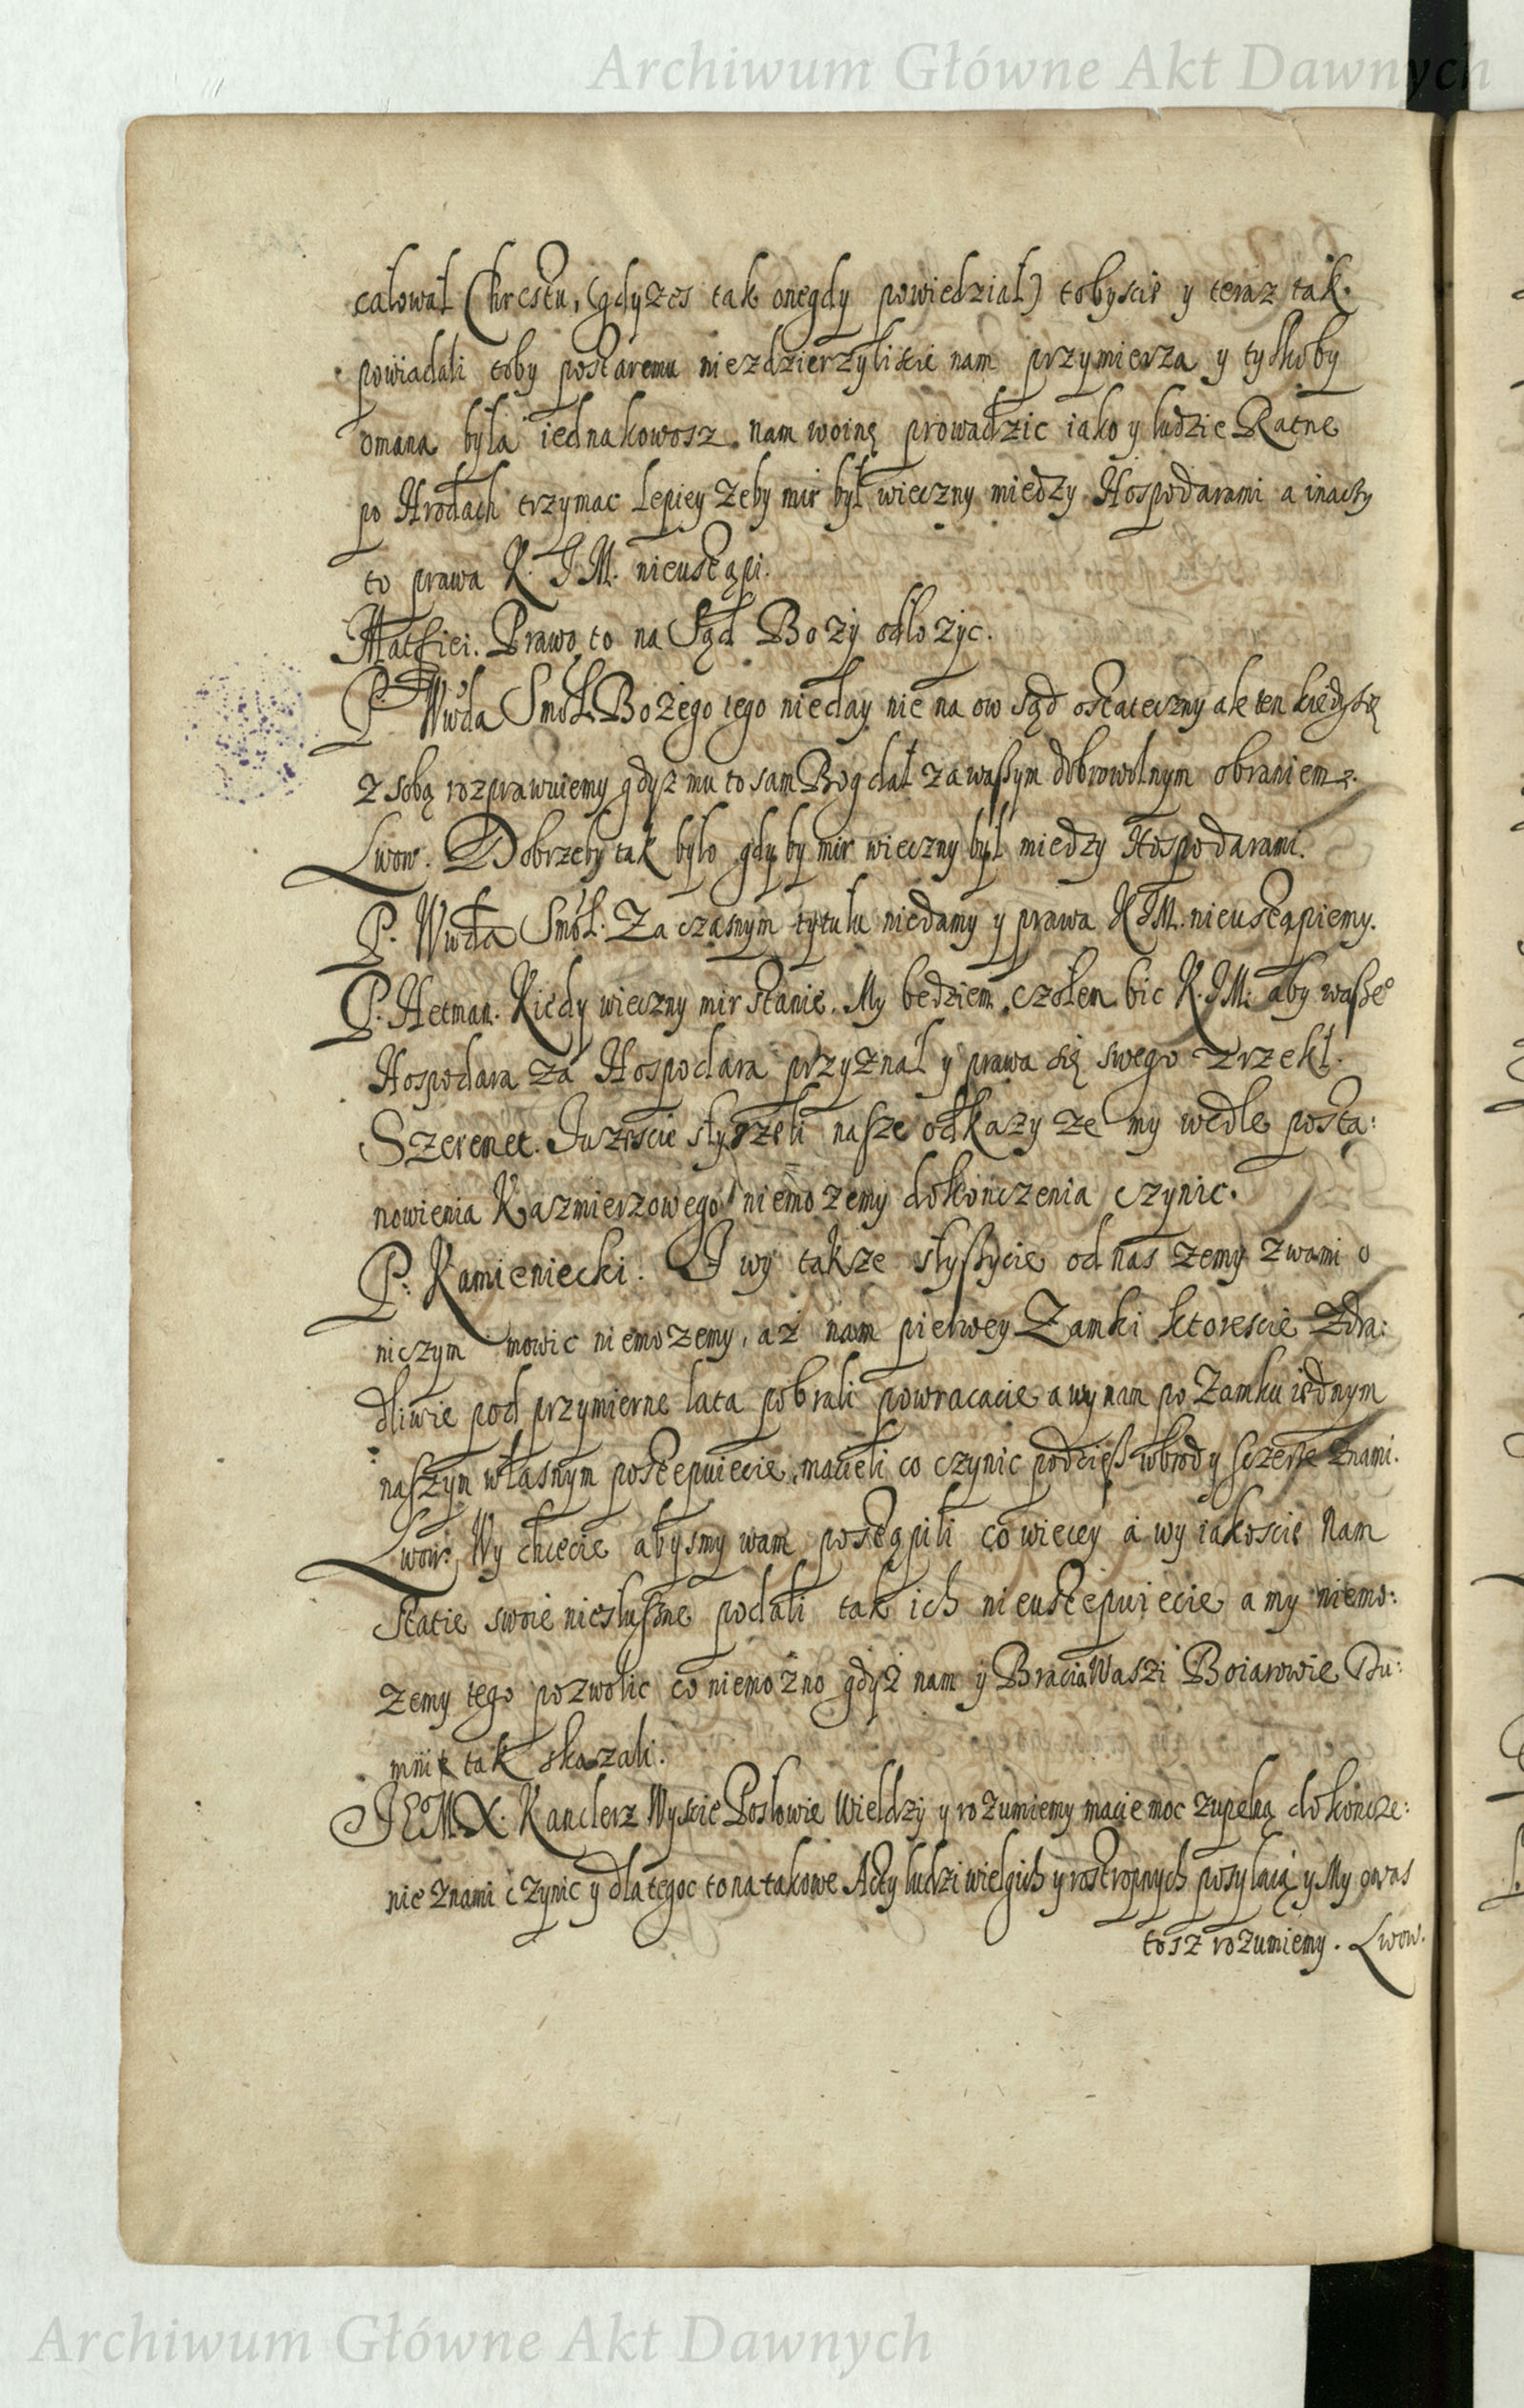 Archiwum Główne Akt Dawnych
calował Chrestu, (gdyzes tak onegdy powiedział) tobyscie y teraz tak.
powiadali toby postaremu niezdzierzyliscie nam przymierza y tylkoby
omana była iednakowosz nam woinę prowadzic iako y ludzie Ratne
po Hrodach trzymac lepiey zeby mir był wieczny miedzy Hospodarami a inaczy
to prawa K. J M. nieustąpi.
Matfiei. Prawo to na Sąd Bozy odłozyc.
P. Wwda Smol. Bozego tego nieday nie na ow sąd ostateczny ale ten kiedy się
z sobą rozprawuiemy gdysz mu to sam Bog dał za waszym dobrowolnym obraniem.
Lwow. Dobrzeby tak było gdyby mir wieczny był miedzy Hospodarami.
P. Wwda Smol. Zaczasnym tytulu niedamy y prawa K J M. nieustąpiemy.
P. Hetman. Kiedy wieczny mir stanie. My bedziem czołem bic K. J M. aby waszego
Hospodara za Hospodara przyznał y prawa się swego zrzekł.
Szeremet. Juzescie słyszeli nasze odkazy ze my wedle posta:
nowienia Kazmierzowego niemozemy dokonczenia czynic.
P. Kamieniecki. I wy takze słyszycie od nas zemy zwami o
niczym mowic niemozemy, aż nam pierwey Zamki ktorescie zdra:
dliwie pod przymierne lata pobrali powracacie a wy nam po Zamku iednym
naszym własnym postepuiecie, macieli co czynic podziesz wbrody sczerze znami.
Lwow. Wy chcecie abysmy wam postąpili co wiecey a wy iakoscie nam
Statie swoie niesłuszne podali tak ich nieustepuiecie a my niemo:
zemy tego pozwolic co niemozno gdyż nam y Bracia Waszi Boiarowie Du:
mnie tak skazali.
JEM X. Kanclerz Wyscie Posłowie wieldzy y rozumiemy macie moc zupelną dokoncze:
nie znami czynic y dla tegoc to na takowe Acty ludzi wielgich y rostropnych posyłaią y My o was
tosz rozumiemy. Lwow.
Archiwum Główne Akt Dawnych